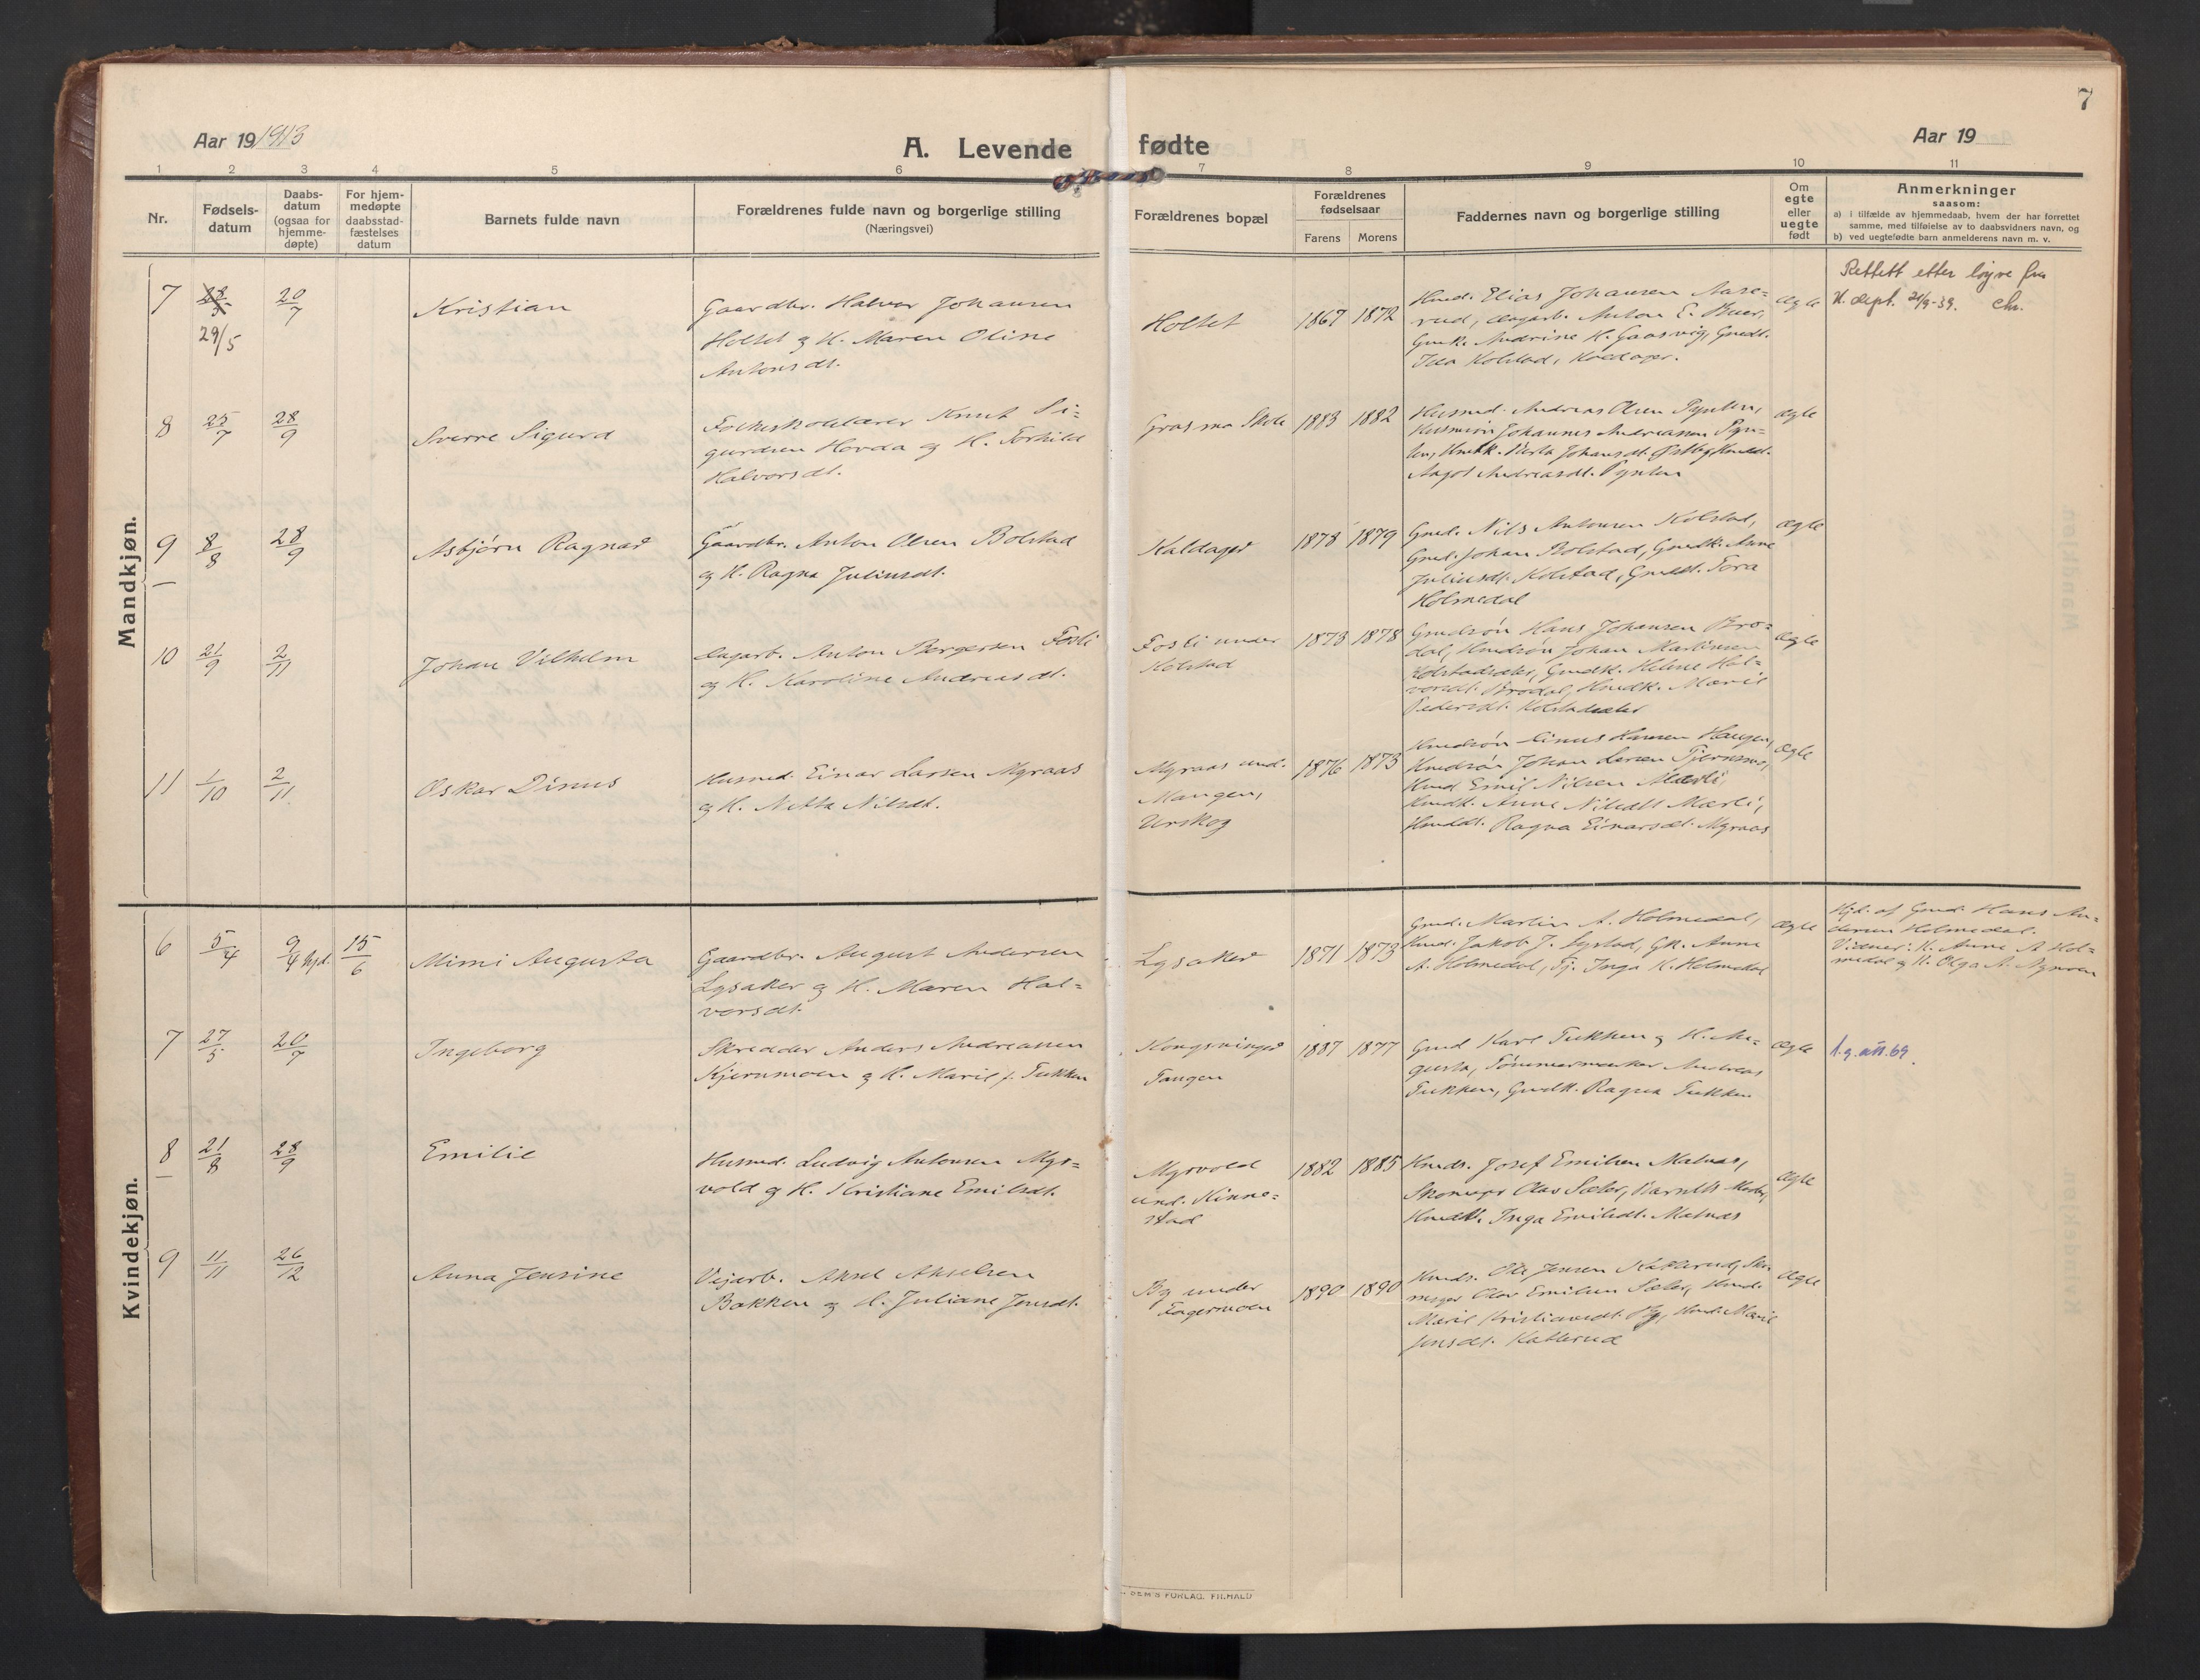 7
Aar 19 1913
A. Levende fødte
Aar 19
1 2 3 4 5 6 7 8 9 10 11
Nr.
Fødsels-
datum
Daabs-
datum
(ogsaa for
hjemme-
døpte)
For hjem-
medøpte
daabsstad-
fæstelses
datum
Barnets fulde navn
Forældrenes fulde navn og borgerlige stilling
(Næringsvei)
Forældrenes bopæl
Forældrenes
fødselsaar
Farens Morens
Faddernes navn og borgerlige stilling
Om
egte
eller
uegte
født
Anmerkninger
saasom:
a) i tilfælde av hjemmedaab, hvem der har forrettet
samme, med tilføielse av to daabsvidners navn, og
b) ved uegtefødte barn anmelderens navn m. v.
Mandkjøn.
7
29/5
20/7
Kristian
Gaardbr. Halvor Johansen
Holtet og H. Maren Oline
Antonsdt.
Holtet
1867 1872
Elias Johansen Aase-
rud, Dagarb. Anton E. Buer,
Gmk. Andrine H. Gaasvig, Gmdt.
Kolstad, Kaldager.
ægte
Rettett etter
dept. 21/9-39. Chr.
8
25/7
28/9
Sverre Sigurd
Folkeskolelærer Knut Si=
gurdsen Hovda og H. Torhild
Halvorsdt.
Grasmo Skole
1883 1882
Husmd. Andreas Olsen Pynten,
Johannes Andreassen Pyn-
ten, Johansdt. Østby,
Aagot Andreasdt. Pynten
ægte
9
8/8
28/9
Asbjørn Ragnar
Gaardbr. Anton Olsen Bolstad
og H. Ragna Juliusdt.
Kaldager
1878 1879
Gmd. Nils Antonsen Kolstad,
Gmd. Johan Bolstad, Gmdk. Anne
Juliusdt. Kolstad, Gmdt. Tora
Holmedal
ægte
10
21/9
2/11
Johan Vilhelm
Dagarb. Anton Bergersen Fosli
og H. Karoline Andreasdt.
Fosli under
Kolstad
1873 1878
Gmdsøn Hans Johansen Bro=
dal, Hmdsøn Johan Martinsen
Kolstadsæter, Gmdk. Helene Hal-
vorsdt. Brodal, Hmdk. Marie
Pedersdt. Kolstadsæter
ægte
11
1/10
2/11
Oskar Dinus
Husmd. Einar Larsen Myraas
og H. Netta Nilsdt.
Myraas und.
Mangen,
Urskog
1876 1873
Hmdsøn Hansen Haugen,
Hmdsøn Johan Larsen
Hmd Emil Nilsen Mærli,
Hmdt. Anne Nilsdt Mærli,
Hmddt. Ragna Einarsdt. Myraas
ægte
Kvindekjøn.
6
5/4
9/4 hjd.
15/6
Mimi Augusta
Gaardbr. August Andersen
Lysaker og H. Maren Hal=
vorsdt.
Lysaker
1871 1873
Gmd. Martin A. Holmedal,
Hmd. Jakob J. Systad, Gk. Anna
A. Holmedal, Tj. Inga K. Holmedal
ægte
Hjd. af Gmd. Hans An-
dersen Holmedal.
Vidner: K. Anne A Hol-
medal og H. Olga A.
7
27/5
20/7
Ingeborg
Skredder Anders Andreassen
Kjernmoen og H. Marie f. Tukken
Kongsvinger
Tangen
1887 1877
Gmd Karl Tukken og H. Au-
gusta, Tømmermærker Andreas
Tukken, Gmdk. Ragna Tukken
ægte
1.g.att.69.
8
21/8
28/9
Emilie
Husmd. Ludvig Antonsen Myr=
vold og H. Kristiane Emilsdt.
Myrvold
und. Kinne=
stad
1882 1885
Hmds. Josef Emilsen Malnas,
Olav Sæter, Barnets Moder,
Inga Emilsdt. Malnas
ægte
9
11/11
26/12
Anna Jensine
Vejarb. Aksel Akselsen
Bakken og H. Juliane Jensdt.
By under
Fagermoen
1890 1890
Hmds. Ole Jensen Katterud, Sko-
mager Olav Emilsen Sæter, Hmd.
Marie Kristiansdt. By, Hmd. Marie
Jensdt. Katterud
ægte
FORLAG. FR.HALD